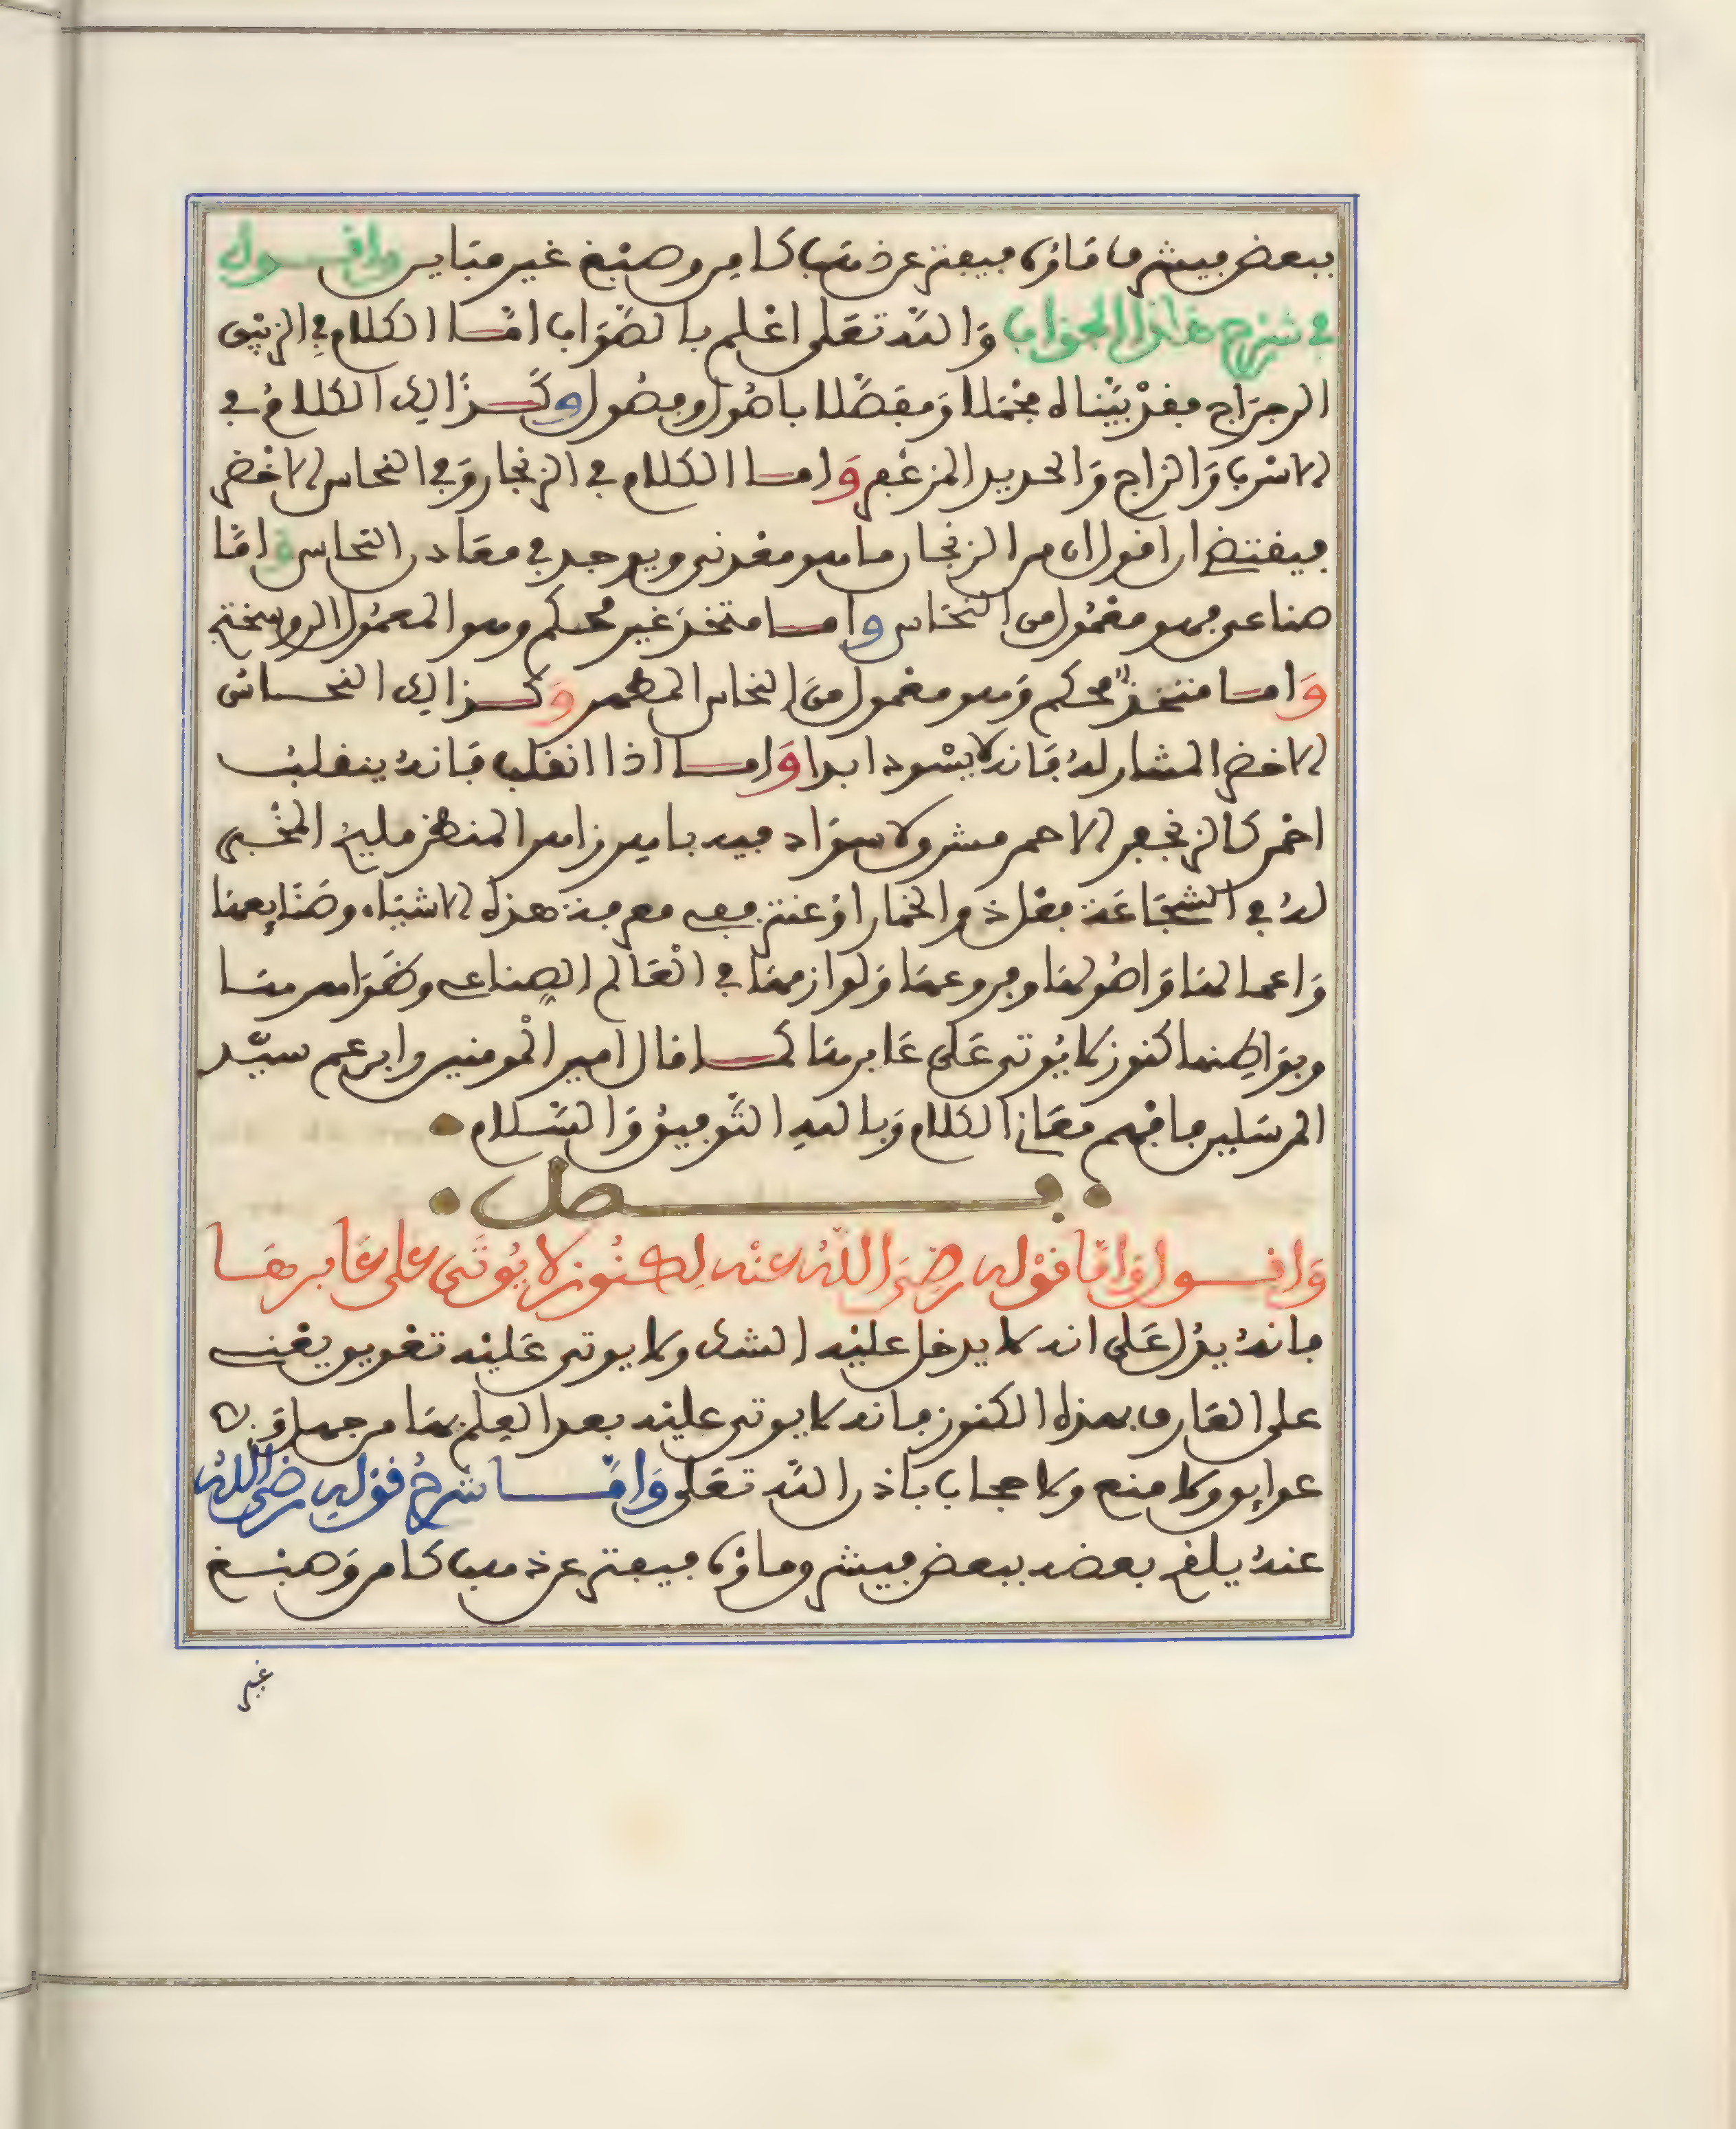 ببعض فيشرفا فاذا فيفتر عن ذهب كامن وصبغ غير متباين واقول
في شرح هاذا الجواب وَالله تعَلى اعْلم بالصَّوَاب امّا الكلام في الزئبق
الرجرَاج فقدْ بَيّناه مجْمَلا وَمفصَّلا باصُول وفصُول وكذالك الكلامُ في
الاسْرب وَالزاج وَالحديد المزعْفر وَاما الكلام في الزنجار وَفي النحاس الاخْضر
فيقتضي ان اقول ان من الزنجار ما هو معْدني ويوجد في معَادن النحاس وَامّا
صناعي فهو معْمُول من النحَاس واما متخذ غير محكم وهو المعمُول الروسختج
وَاما متخذ محكم وَهو معْمول منَ النحاس المطهر وَكذالك النحاس
الاخضر المشار لهُ فَانه لا يسْود ابدا وَاما اذا انقلب فَانهُ ينقلبُ
احْمر كالزنجفر الاحمر مشرق لا سوَاد فيه باهر زاهر المنظر مليح المخْبر
لهُ في الشجَاعَة مقلة من الخمار اوْ عنتر ففي معرفة هذه الاشيَاء وصَنَايعهَا
وَاعمالهَا وَاصُولهَا وفروعهَا وَلوازمهَا في الْعَالم الصناعي وظَوَاهرهَا
وبوَاطِنها كنوز لا يُوتى عَلى غَابرهَا كما قال امير الْمومنين وابن عم سيّد
المرسَلين فافهم معَاني الكلام وَبالله التَّوفيقُ وَالسَّلام
فصل
وَاقول وَامّا قوْله رضيَ اللهُ عنْه لكنُوز لا يُوتَى على غَابرهَا
فانهُ يدُل عَلى انه لا يدخل عليْه الشك ولا يوتى عَليْه تعْويق يعْني
على العَارف بهذه الكنوز فانه لا يوتى عليْه بعد العِلم بهَا من جهل وَلا
عوايق ولا منع ولا حجاب باذن الله تعَلى وَامّا شرحُ قوْلِهِ رضي اللهُ
عنهُ يلغز بعضه ببعض فيشرفا فاذا فيفتر عن ذهب كامن وَصبْغ
غير